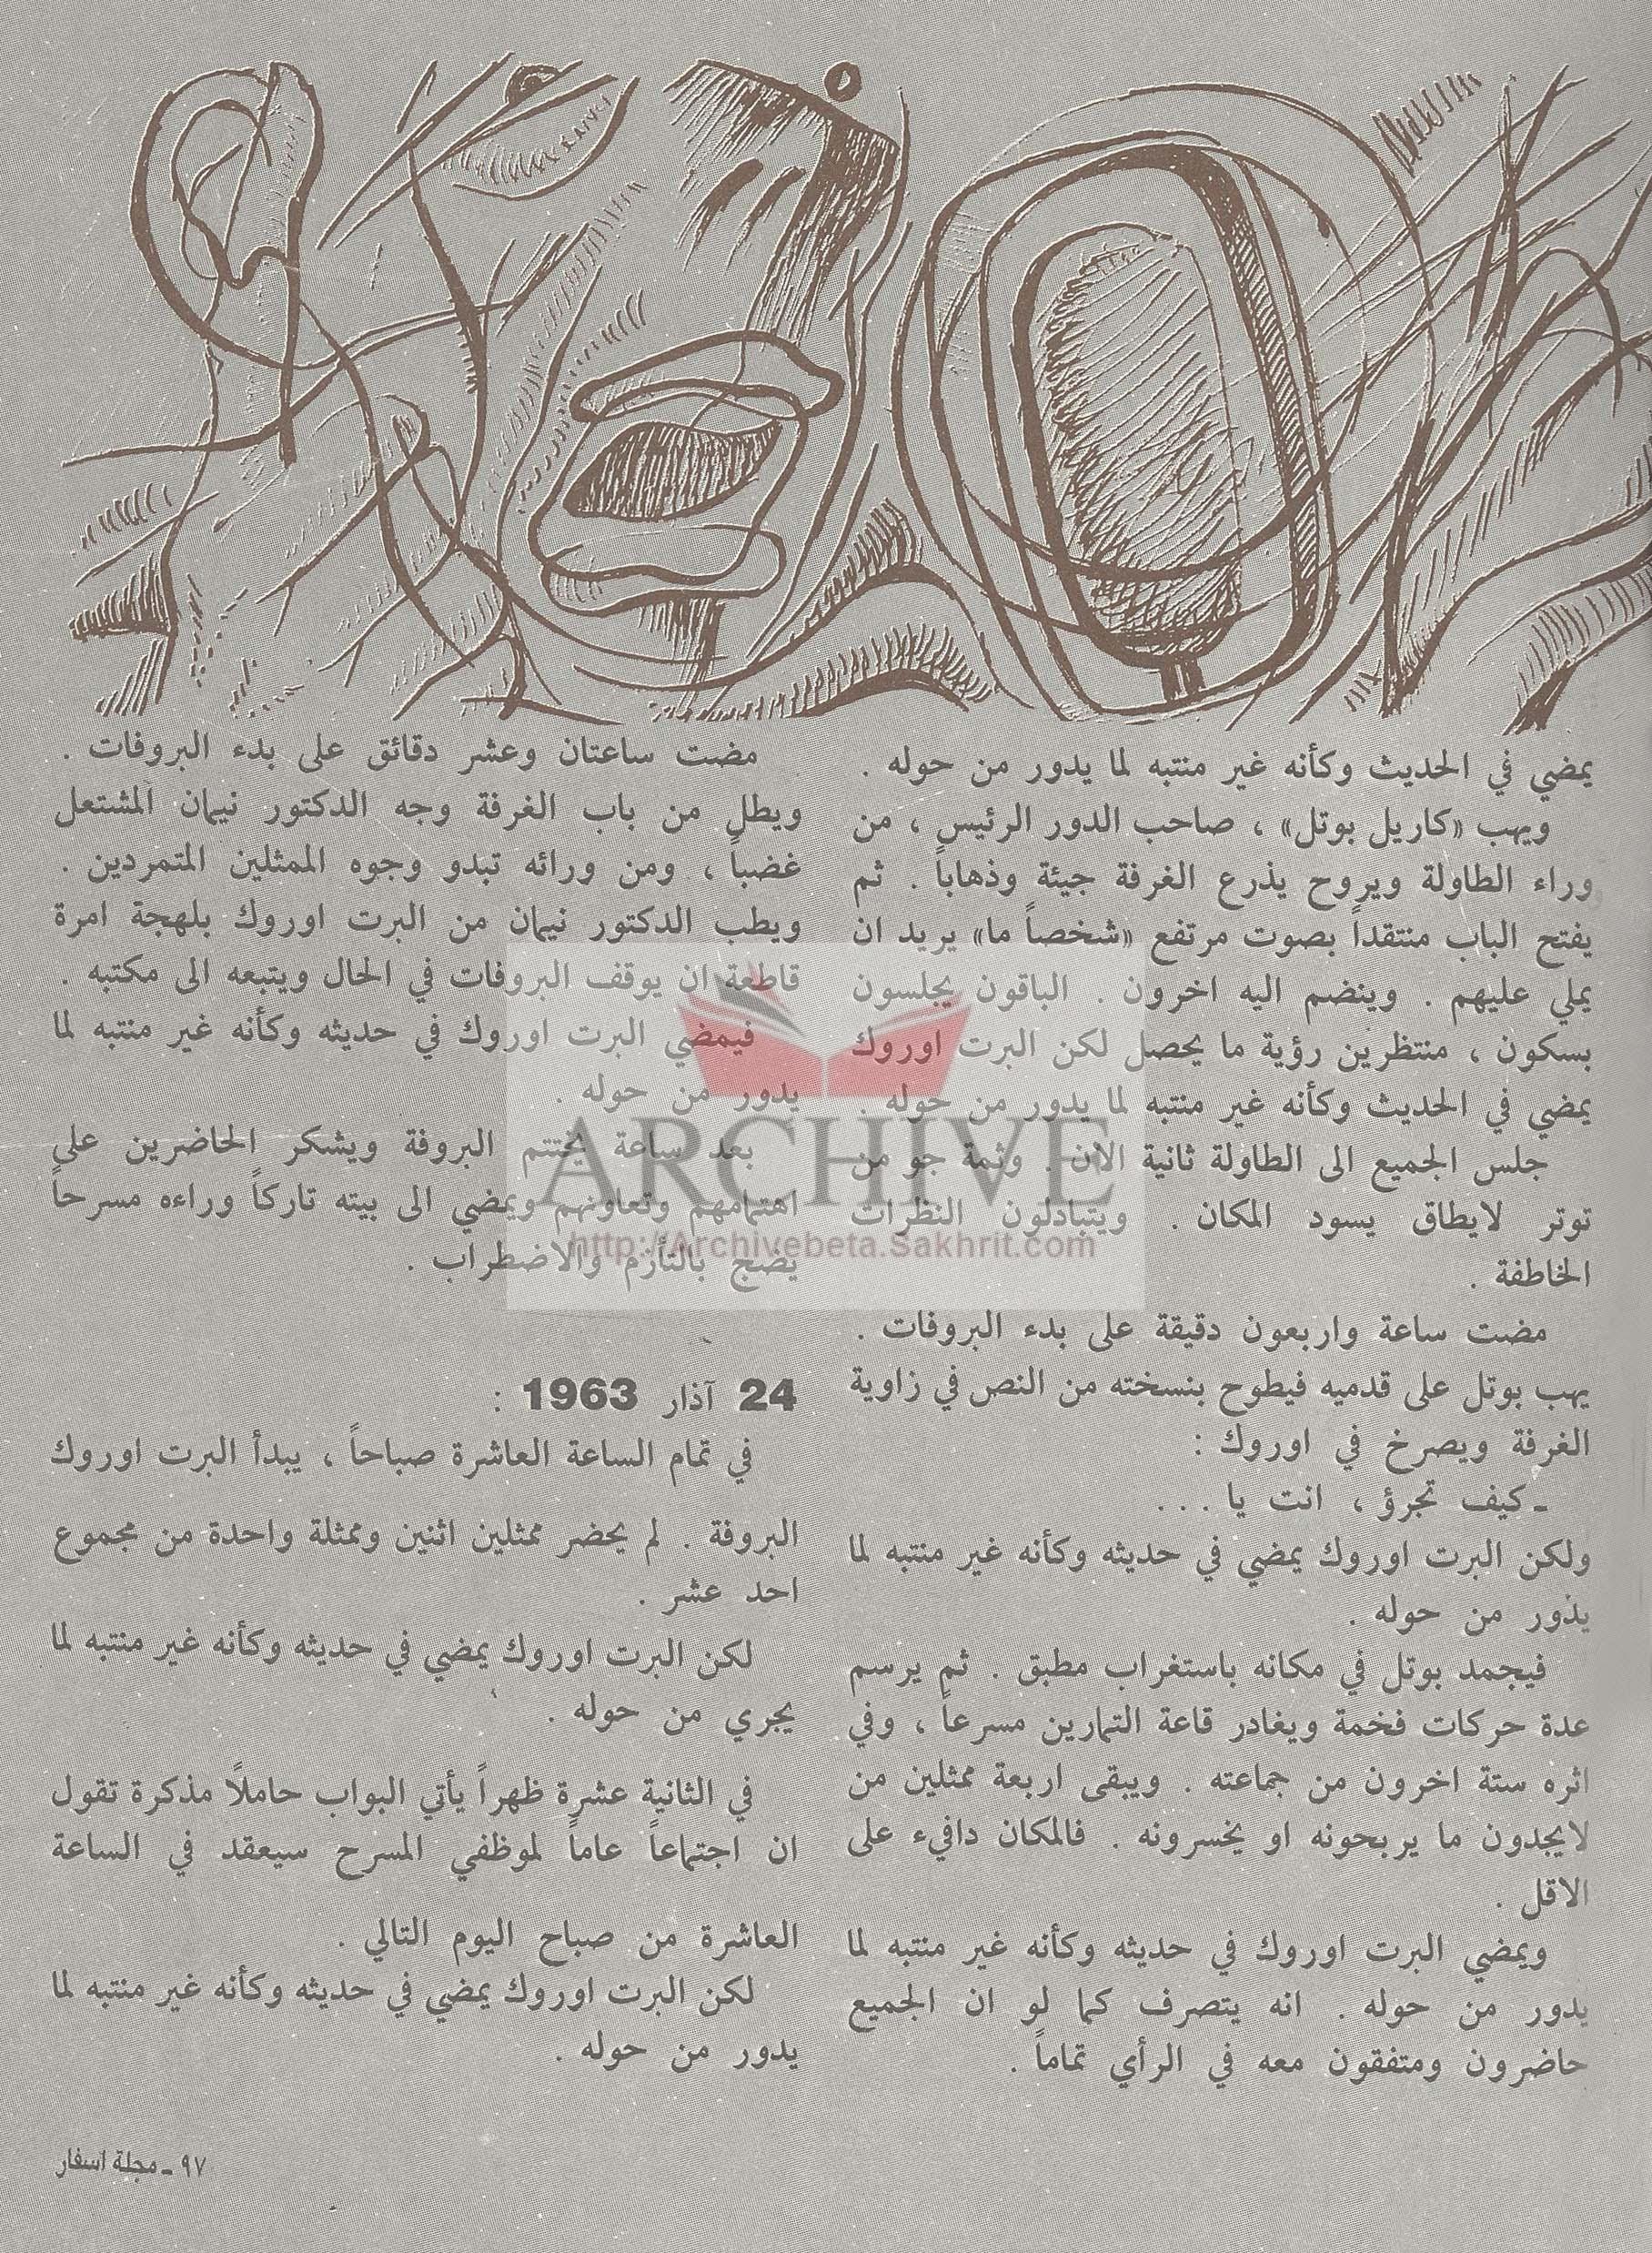 يمضي في الحديث وكأنه غير منتبه لما يدور من حوله .
ويهب «كاريل بوتل» ، صاحب الدور الرئيس ، من
وراء الطاولة ويروح يذرع الغرفة جيئة وذهاباً . ثم
يفتح الباب منتقداً بصوت مرتفع «شخصاً ما» يريد ان
يملي عليهم . وينضم اليه اخرون . الباقون يجلسون
بسكون ، منتظرين رؤية ما يحصل لكن البرت اوروك
يمضي في الحديث وكأنه غير منتبه لما يدور من حوله .
جلس الجميع الى الطاولة ثانية الان . وثمة جو من
توتر لايطاق يسود المكان . ويتبادلون النظرات
الخاطفة .
مضت ساعة واربعون دقيقة على بدء البروفات .
يهب بوتل على قدميه فيطوح بنسخته من النص في زاوية
الغرفة ويصرخ في اوروك :
ـ كيف تجرؤ ، انت يا . . .
ولكن البرت اوروك يمضي في حديثه وكأنه غير منتبه لما
يدور من حوله .
فيجمد بوتل في مكانه باستغراب مطبق . ثم يرسم
عدة حركات فخمة ويغادر قاعة التمارين مسرعاً ، وفي
اثره ستة اخرون من جماعته . ويبقى اربعة ممثلين من
لايجدون ما يربحونه او يخسرونه . فالمكان دافيء على
الاقل .
ويمضي البرت اوروك في حديثه وكأنه غير منتبه لما
يدور من حوله . انه يتصرف كما لو ان الجميع
حاضرون ومتفقون معه في الرأي تماماً .
مضت ساعتان وعشر دقائق على بدء البروفات .
ويطل من باب الغرفة وجه الدكتور نيمان المشتعل
غضباً ، ومن ورائه تبدو وجوه الممثلين المتمردين .
ويطب الدكتور نيمان من البرت اوروك بلهجة امرة
قاطعة ان يوقف البروفات في الحال ويتبعه الى مكتبه .
فيمضي البرت اوروك في حديثه وكأنه غير منتبه لما
يدور من حوله .
بعد ساعة يختتم البروفة ويشكر الحاضرين على
اهتمامهم وتعاونهم ويمضي الى بيته تاركاً وراءه مسرحاً
يضج بالتأزم والاضطراب .
24 آذار 1963 :
في تمام الساعة العاشرة صباحاً ، يبدأ البرت اوروك
البروفة . لم يحضر ممثلين اثنين وممثلة واحدة من مجموع
احد عشر .
لكن البرت اوروك يمضي في حديثه وكأنه غير منتبه لما
يجري من حوله .
في الثانية عشرة ظهراً يأتي البواب حاملاً مذكرة تقول
ان اجتماعاً عاماً لموظفي المسرح سيعقد في الساعة
العاشرة من صباح اليوم التالي .
لكن البرت اوروك يمضي في حديثه وكأنه غير منتبه لما
يدور من حوله .
ARCHIVE
http://Archivebeta.Sakhrit.com
٩٧ ـ مجلة اسفار